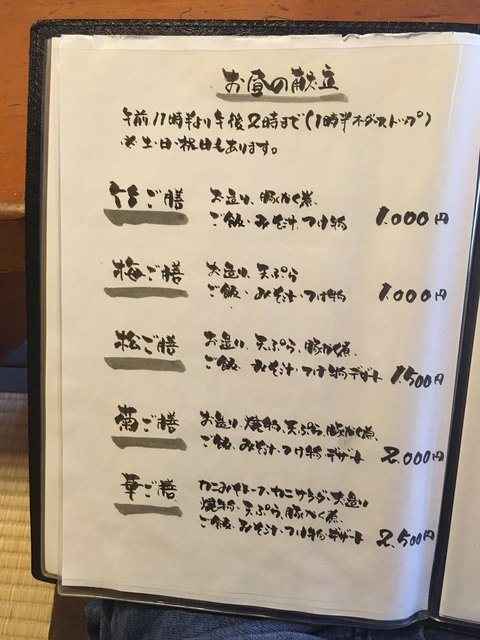 お昼の献立
午前11時半より午後2時まで(1時半オーダーストップ)
※土・日・祝日もあります。
竹ご膳 お造り、豚かく煮、
ご飯・みそ汁・つけ物 1.000円
梅ご膳 お造り、天ぷら
ご飯・みそ汁・つけ物 1.000円
松ご膳 お造り、天ぷら、豚かく煮、
ご飯・みそ汁・つけ物 デザート 1.500円
菊ご膳 お造り、焼物、天ぷら、豚かく煮、
ご飯、みそ汁・つけ物 デザート 2.000円
華ご膳 カニみそトーフ・カニサラダ・お造り
焼物、天ぷら、豚かく煮、
ご飯、みそ汁・つけ物 デザート 2.500円